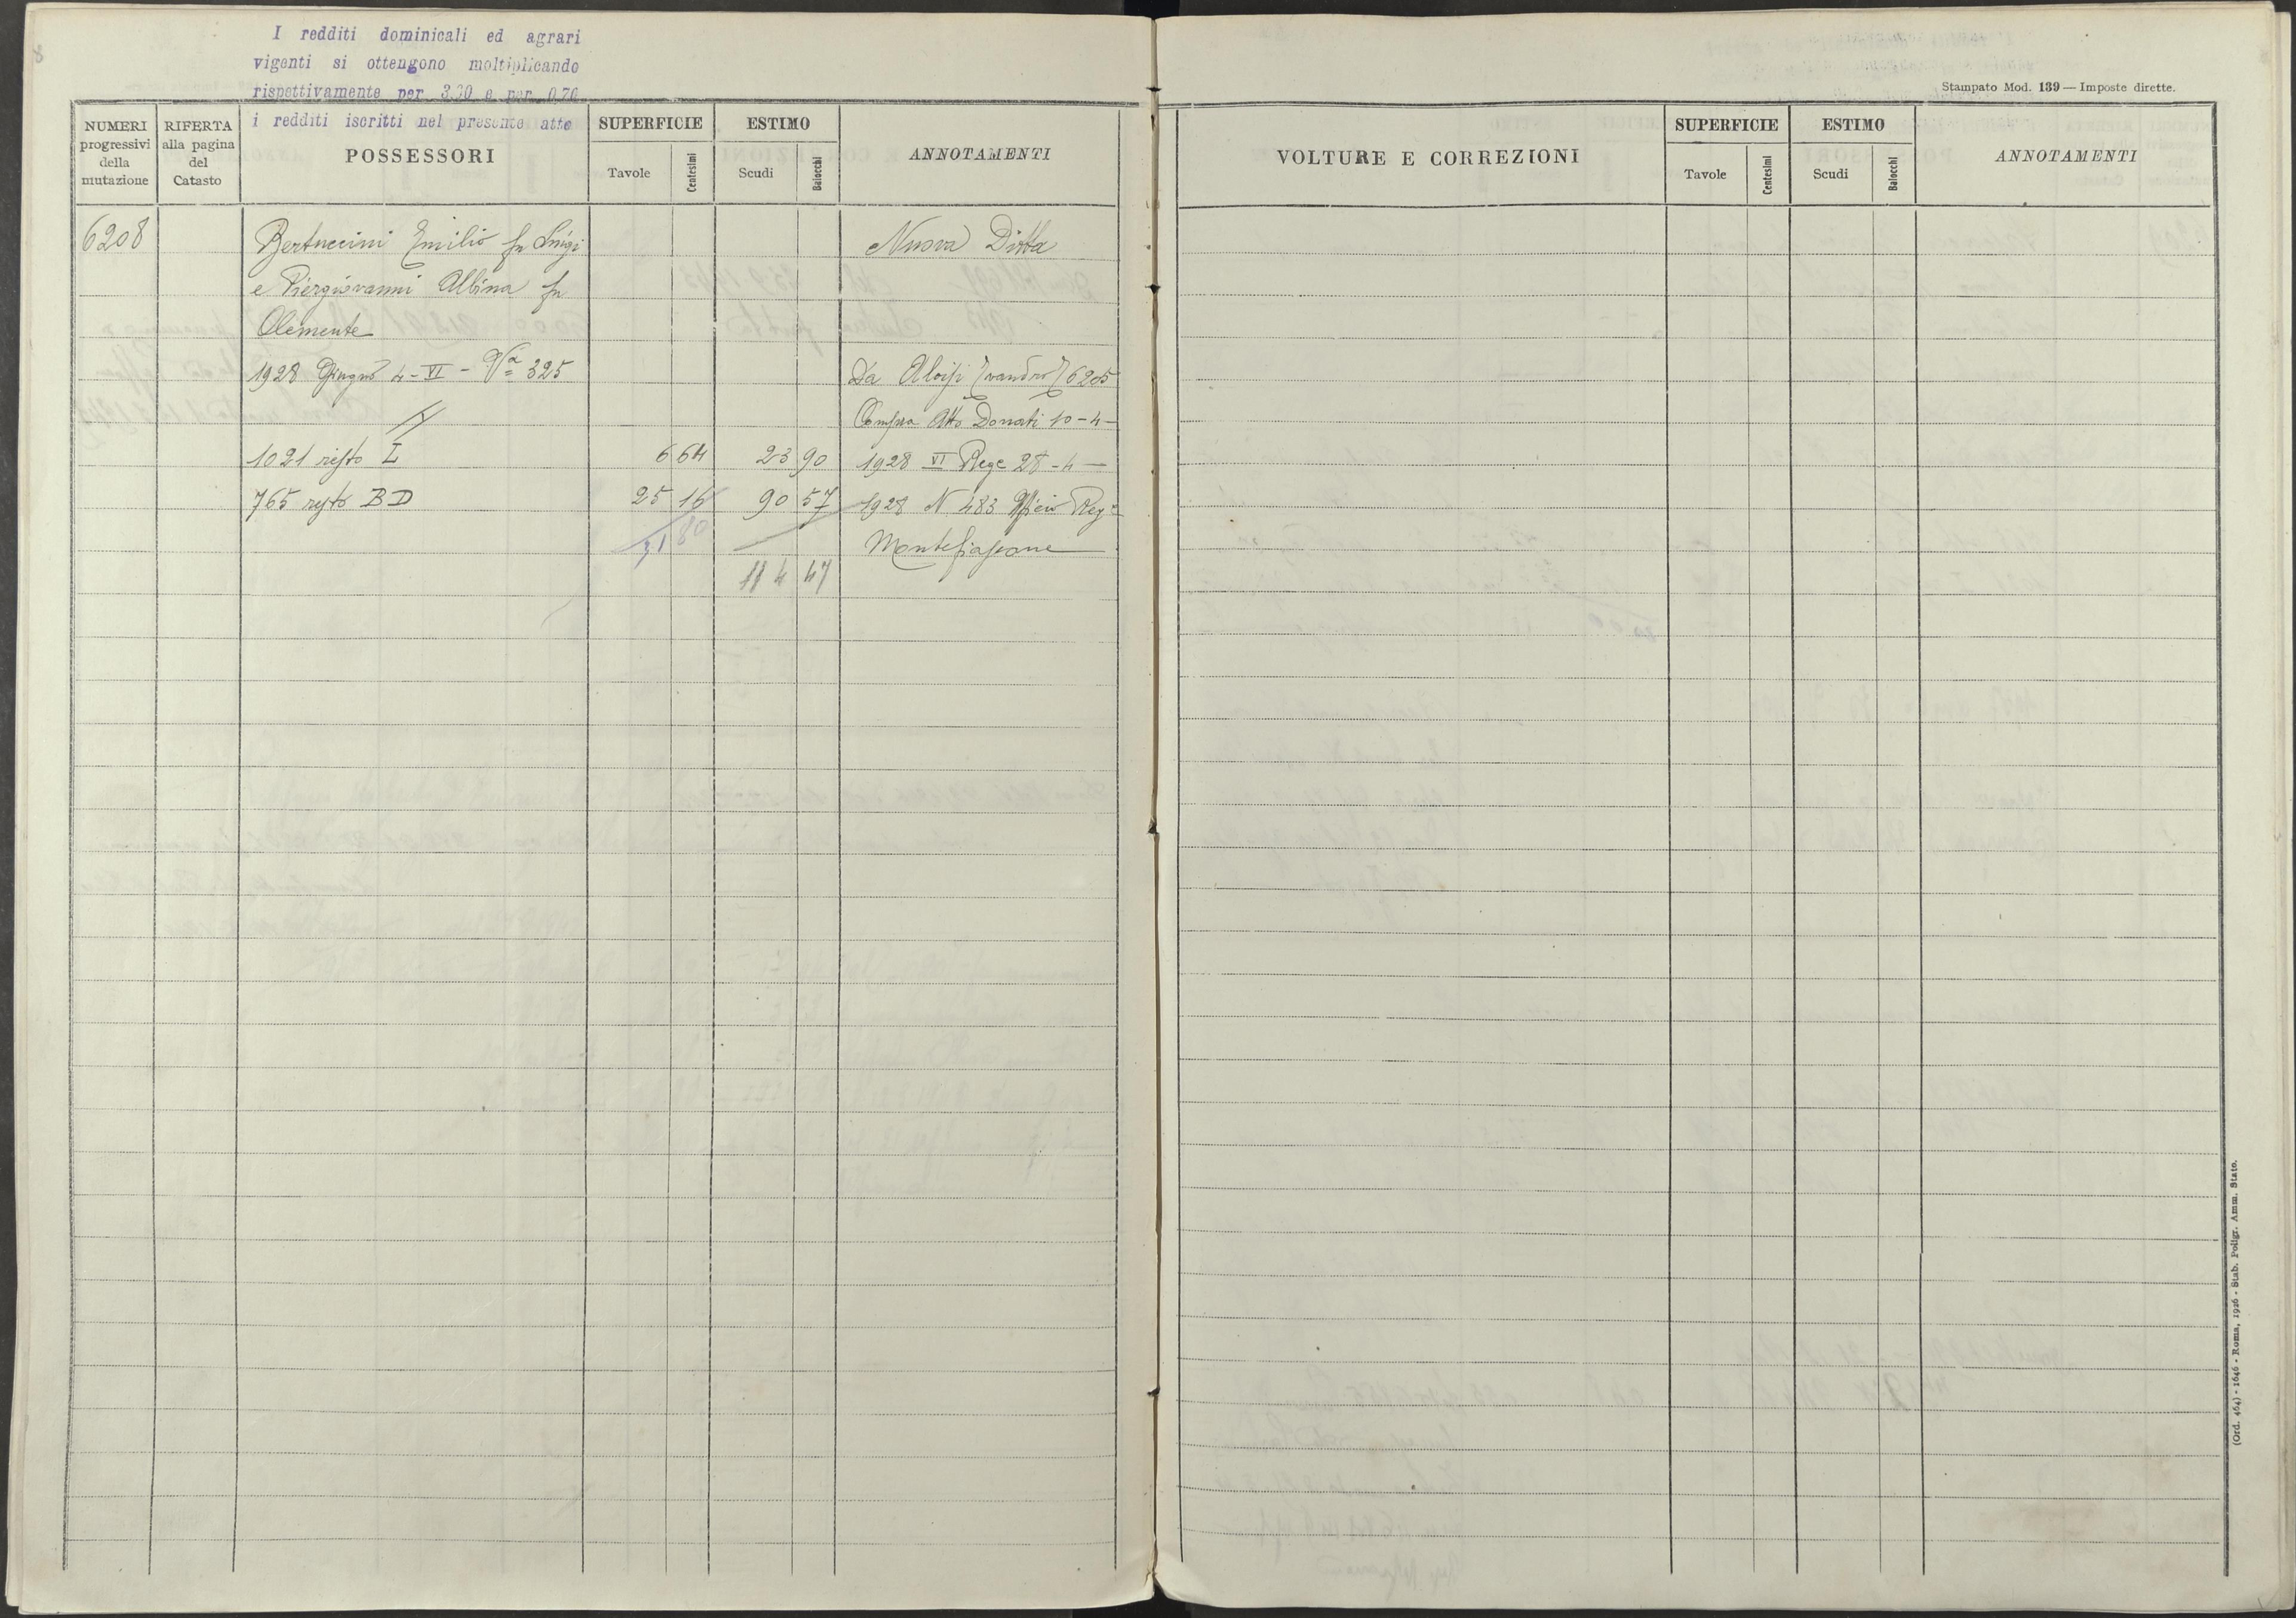 I redditi dominicali ed agrari
vigenti si ottengono moltiplicando
rispettivamente per 3.30 e per 0.70
i redditi iscritti nel presente atto
NUMERI
progressivi
della
mutazione
RIFERTA
alla pagina
del
Catasto
POSSESSORI
SUPERFICIE
Tavole
Centesimi
ESTIMO
Scudi
Baiocchi
ANNOTAMENTI
6208 Bertuccini Emilio fu Luigi Nuova Ditta
e Piergiovanni Albina fu
Clemente
1928 Giugno 4 - VI - Va 325 Da Aloisi Evandro 6205
Compra Atto Donati 10-4-
1021 resto I 6 64 23 90 1928 VI Rege 28-4-
765 resto BD 25 16 90 57 1928 N 483 Officio Rege
31 80 Montefiascone
114 47
Stampato Mod. 139 — Imposte dirette.
VOLTURE E CORREZIONI
SUPERFICIE
Tavole
Centesimi
ESTIMO
Scudi
Baiocchi
ANNOTAMENTI
(Ord. 464) - 1646 - Roma, 1926 - Stab. Poligr. Amm. Stato.